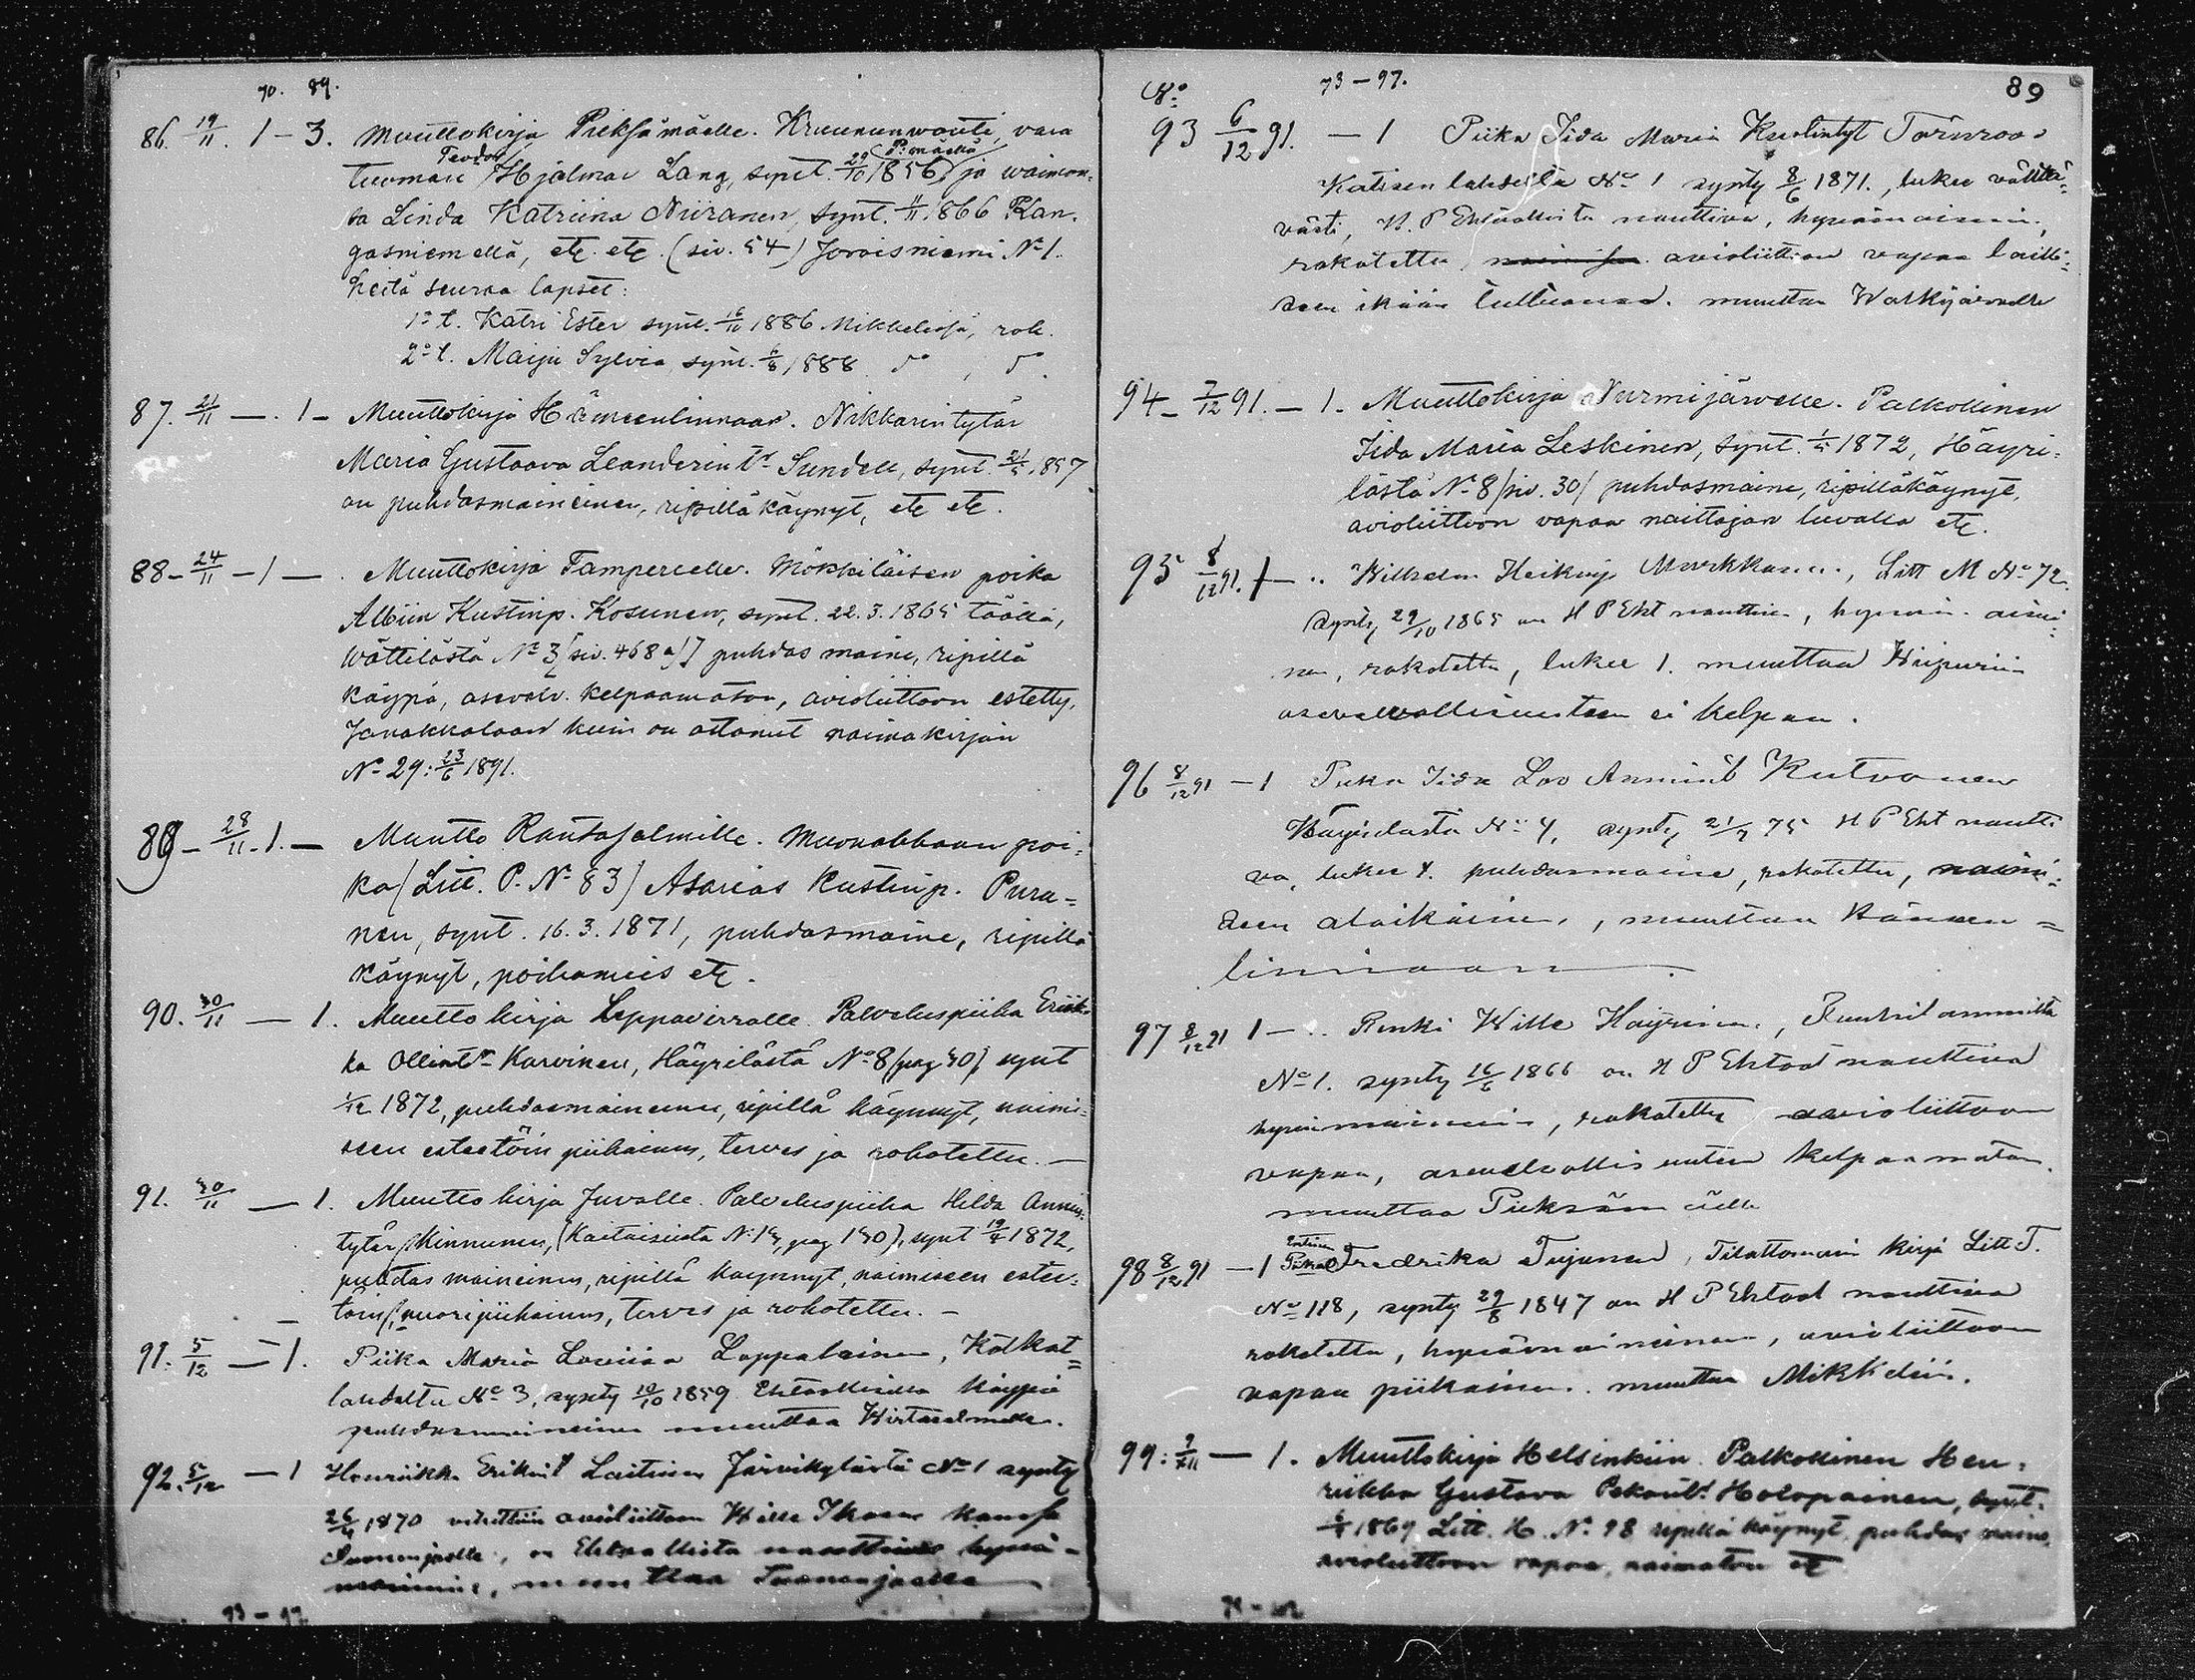 70. 89.
86. 19/11. 1 – 3. Muuttokirja Pieksämäelle. Kruununwouti, vara
tuomari Teodor Hjalmar Lang, synt. 29/10 1856 P:mäellä ja waimon-
sa Linda Katriina Niiranen, synt. 11/11 1866 Kan-
gasniemellä, etc. etc. (siv. 54) Joroisniemi No 1.
Keitä seuraa lapset:
1o t. Katri Ester synt. 16/10 1886 Mikkelissä, rok.
2o t. Maiju Sylvia, synt. 6/8 1888 do, do.
87. 21/11 — . 1 – Muuttokirja Hämeenlinnaan. Nikkarintytär
Maria Gustaava Leanderint:r Sundell, synt. 21/5 1857
on puhdasmaineinen, ripilläkäynyt, etc etc.
88 – 24/11 – 1 — . Muuttokirja Tampereelle. Mökkiläisen poika
Albiin Kustinp. Kosunen, synt. 22.3.1865 täällä,
Wättilästä No 3 [siv. 468 a)] puhdas maine, ripillä
käypä, asevelv. kelpaamaton, avioliittoon estetty,
Janakkalaan kuin on ottanut naimakirjan
No 29: 23/6 1891.
89 – 28/11 – 1. — Muutto Rantasalmille. Muonabbaan poi-
ka (Litt. P. No 83) Asarias Kustinp. Pura=
nen, synt. 16.3.1871, puhdasmaine, ripillä
käynyt, poikamies etc.
90. 30/11 — 1. Muuttokirja Leppävirralle. Palveluspiika Eriik-
ka Ollint:r Karvinen, Häyrilästä No 8 (pag 30) synt
1/12 1872, puhdasmaineinen, ripillä käynnyt, naimi-
seen esteetöin piikainen, terves ja rokotettu. —
91. 30/11 — 1. Muuttokirja Juvalle. Palveluspiika Hilda Annin-
tytär Kinnunen, (Kaitaisista No 13, pag 130), synt 19/4 1872,
puhdas maineinen, ripillä käynnyt, naimiseen estee-
töin, nuori piikainen, terves ja rokotettu. –
91. 5/12 — 1. Piika Maria Loviisa Lappalainen, Kotkat=
lahdelta No 3, synty 10/10 1859 Ehtoollisella käypä
puhdasmaineinen muuttaa Wirtasalmelle.
92. 5/12 — 1 Henriikka Erikint Laitinen Järvikylästä No 1 synty
26/4 1870 vihittiin avioliittoon Wille Ikosen kanssa
Suonenjoelle, on Ehtoollista nauttiva hyvä-
maininen, muuttaa Suonenjoelle
93 – 97
No 73 – 97. 89
93 6/12 91. — 1 Piika Iida Maria Kustintyt Törnroos
Katisen lahdelta No 1 synty 8/6 1871., lukee välttä-
västi, H. P Ehtoollista nauttiva, hyvämainen,
rokotettu, avioliittoon vapaa lailli-
seen ikään tultuansa. muuttaa Walkjärvelle
94 – 7/12 91. — 1. Muuttokirja Nurmijärvelle. Palkollinen
Iida Maria Leskinen, synt. 1/5 1872, Häyri-
lästä No 8 /siv. 30/ puhdasmaine, ripilläkäynyt,
avioliittoon vapaa naittajan luvalla etc.
95 8/12 91. 1 — .. Wilhelm Heikinp Markkanen, Litt M No 72.
synty 29/10 1865 on H P Eht nauttiva, hyvämainei-
nen, rokotettu, lukee 1. muuttaa Wiipuriin
asevelvollisuuteen ei kelpaa.
96 8/12 91 — 1 Piika Iida Lov Annint Kutvonen
Häyrilästä No 4, synty 21/7 75 H P Eht nautti
va, lukee 1. puhdasmaine, rokotettu, naimi-
seen alaikäinen, muuttaa Hämeen=
linnaan.
97 8/12 91 1 — .. Renki Wille Häyrinen, Ruuhilammilta
No 1. synty 16/6 1866 on H P Ehtoot nauttiva
hyvämaininen, rokotettu avioliittoon
vapaa, asevelvollisuuteen kelpaamaton.
muuttaa Pieksämäelle
98 8/12 91 — 1 Entinen Piika Fredrika Tujunen, Tilattomain kirja Litt T.
No 118, synty 29/8 1847 on H P Ehtoot nauttiva
rokotettu, hyvämaineinen, avioliittoon
vapaa piikainen. muuttaa Mikkeliin.
99: 9/XII — 1. Muuttokirja Helsinkiin. Palkollinen Hen-
riikka Gustava Pekant:r Holopainen, synt.
1869 Litt. H. No 98 ripillä käynyt, puhdas maine,
avioliittoon vapaa, naimaton etc